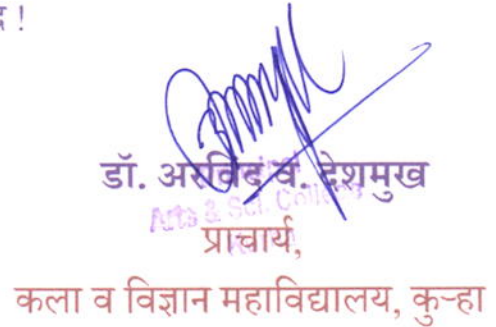 !
डॉ. अरविंद वं. देशमुख
Arts & Sci. College
प्राचार्य,
कला व विज्ञान महाविद्यालय, कुऱ्हा